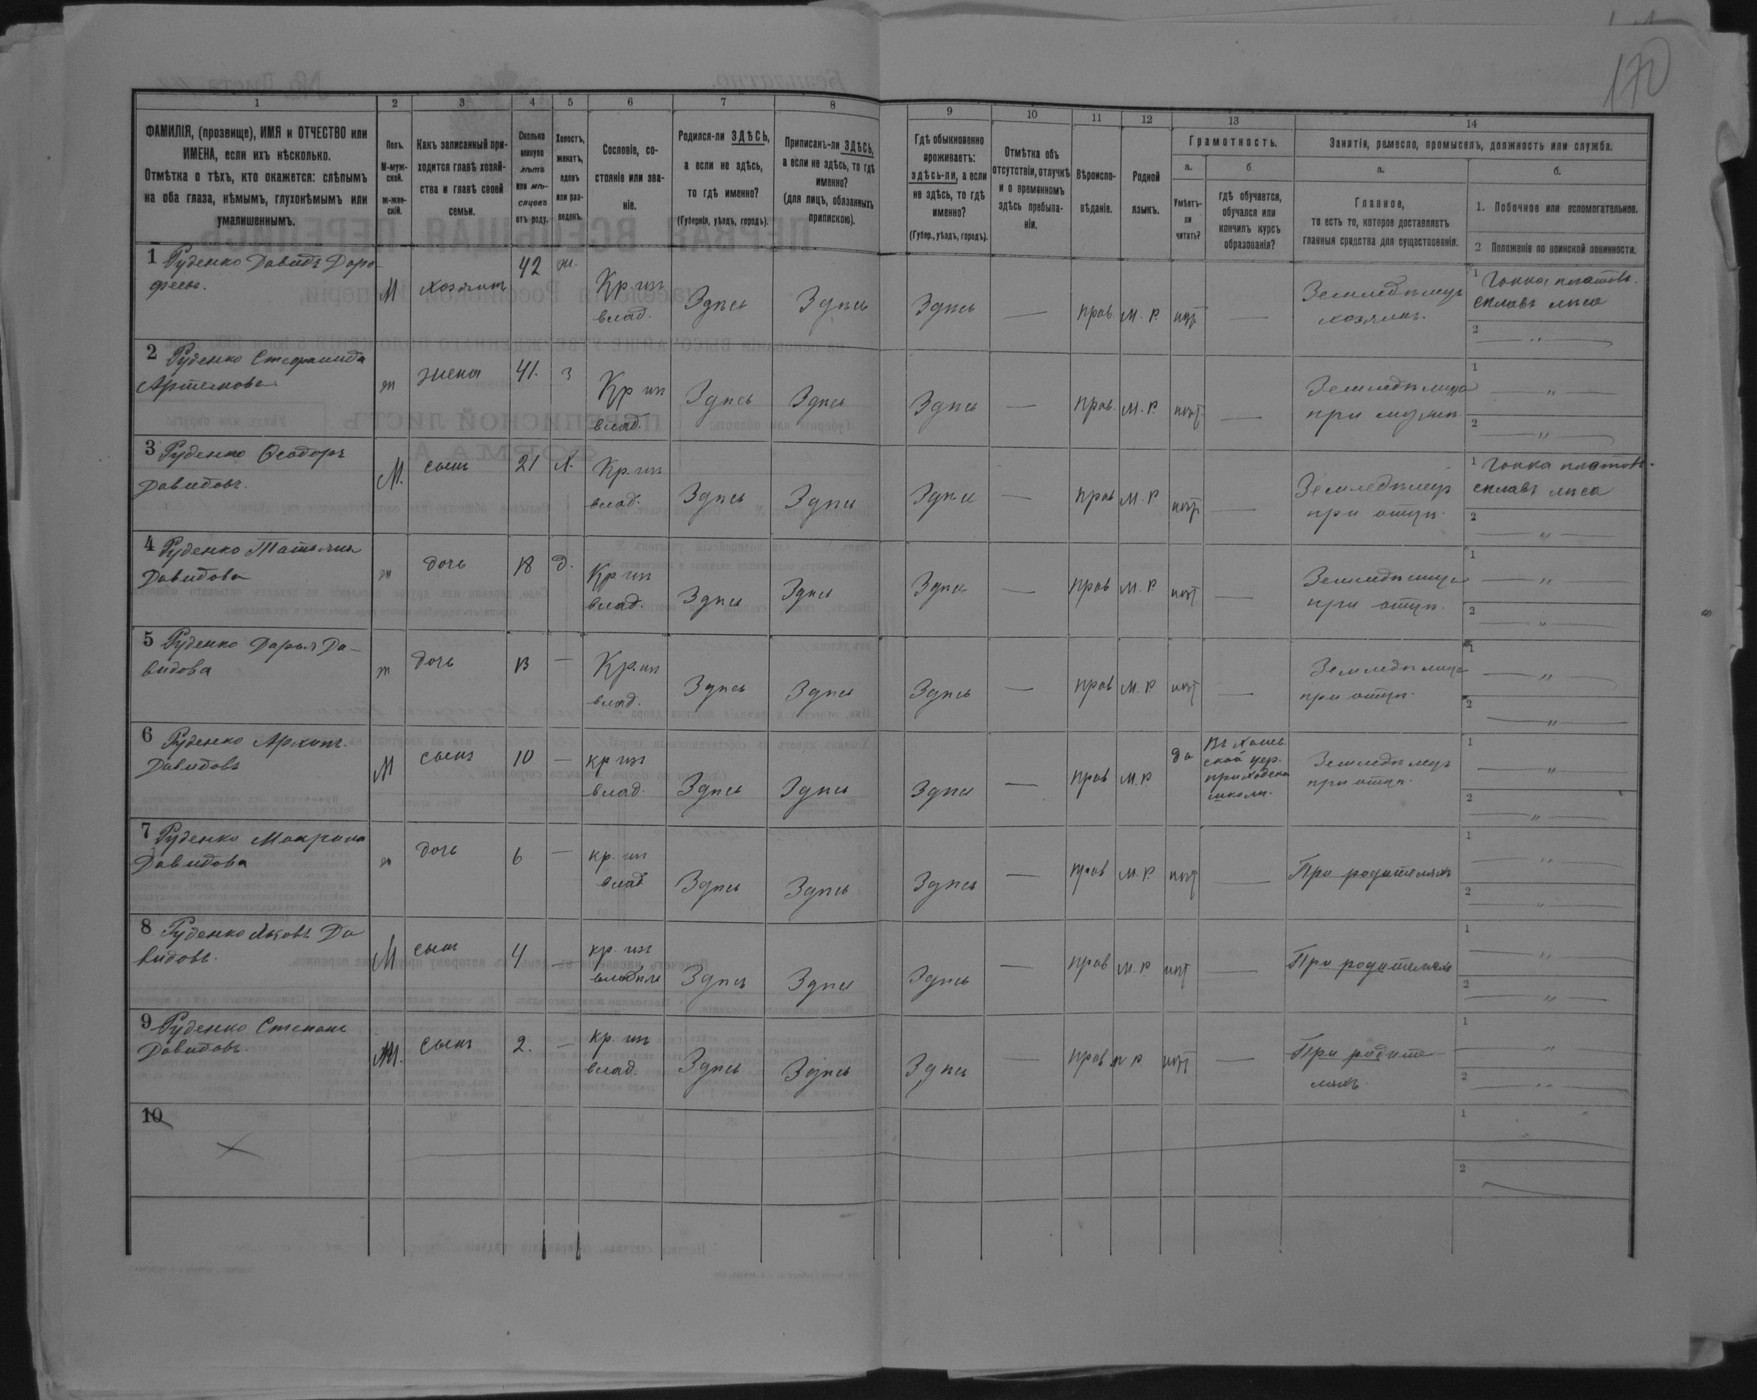 170
1 2 3 4 5 6 7 8 9 10 11 12 13 14
ФАМИЛІЯ, (прозвище), ИМЯ и ОТЧЕСТВО или
ИМЕНА, если ихъ нѣсколько.
Отмѣтка о тѣхъ, кто окажется: слѣпымъ
на оба глаза, нѣмымъ, глухонѣмымъ или
умалишеннымъ.
Полъ.
М-мужской.
ж-женскій.
Какъ записанный при-
ходится главѣ хозяй-
ства и главѣ своей
семьи.
Сколько
минуло
лѣтъ
или мѣ-
сяцевъ
отъ роду.
Холостъ,
женатъ,
вдовъ
или раз-
веденъ.
Сословіе, со-
стояніе или зва-
ніе.
Родился-ли ЗДѢСЬ,
а если не здѣсь,
то гдѣ именно?
(Губернія, уѣздъ, городъ).
Приписанъ-ли ЗДѢСЬ,
а если не здѣсь, то гдѣ
именно?
(для лицъ, обязанныхъ
припискою).
Гдѣ обыкновенно
проживаетъ:
здѣсь-ли, а если
не здѣсь, то гдѣ
именно?
(Губер., уѣздъ, городъ).
Отмѣтка объ
отсутствіи, отлучкѣ
и о временномъ
здѣсь пребыва-
ніи.
Вѣроиспо-
вѣданіе.
Родной
языкъ.
Грамотность.
а.
Умѣетъ-
ли
читать?
б.
гдѣ обучается,
обучался или
кончилъ курсъ
образованія?
Занятія, ремесло, промыселъ, должность или служба.
а.
Главное,
то есть то, которое доставляетъ
главныя средства для существованія.
б.
1. Побочное или вспомогательное.
2 Положеніе по воинской повинности.
1 Руденко Давидъ Доро-
феевъ.
М хозяинъ 42 ж. Кр. изъ
влад. Здѣсь Здѣсь Здѣсь — прав М. Р. нѣт —
Земледѣлецъ
хозяинъ.
1 Гонка плотовъ.
сплавъ лѣса
2 — " —
2 Руденко Степанида
Артемова
ж жена 41. з Кр изъ
влад. Здѣсь Здѣсь Здѣсь — прав. М. Р. нѣт —
Земледѣлица
при мужѣ
1 — " —
2 — " —
3 Руденко Ѳеодоръ
Давидовъ.
М. сынъ 21 х. Кр. изъ
влад. Здѣсь Здѣсь Здѣсь — прав М. Р. нѣт —
Земледѣлецъ
при отцѣ.
1 Гонка плотовъ.
сплавъ лѣса
2 — " —
4 Руденко Татьяна
Давидова
ж дочь 18 д. Кр изъ
влад. Здѣсь Здѣсь Здѣсь — прав М. Р. нѣт —
Земледѣлица
при отцѣ.
1 — " —
2 — " —
5 Руденко Дарья Да-
видова
ж дочь 13 — Кр. изъ
влад. Здѣсь Здѣсь Здѣсь — прав М. Р. нѣт —
Земледѣлица
при отцѣ.
1 — " —
2 — " —
6 Руденко Архипъ
Давидовъ
М сынъ 10 — кр изъ
влад. Здѣсь Здѣсь Здѣсь — прав М. Р. да
ской цер.
приходской
школѣ.
Земледѣлецъ
при отцѣ.
1 — " —
2 — " —
7 Руденко Макрина
Давидова
ж дочь 6 — кр. изъ
влад Здѣсь Здѣсь Здѣсь — прав М. Р. нѣт —
При родителяхъ
1 — " —
2 — " —
8 Руденко Яковъ Да
видовъ.
М сынъ 4 — кр. изъ
Здѣсь Здѣсь Здѣсь — прав М. Р. нѣт —
При родителяхъ
1 — " —
2 — " —
9 Руденко Степанъ
Давидовъ.
М. сынъ 2. — кр. изъ
влад. Здѣсь Здѣсь Здѣсь — прав М. Р. нѣт —
При родите-
ляхъ.
1 — " —
2 — " —
10
1
2